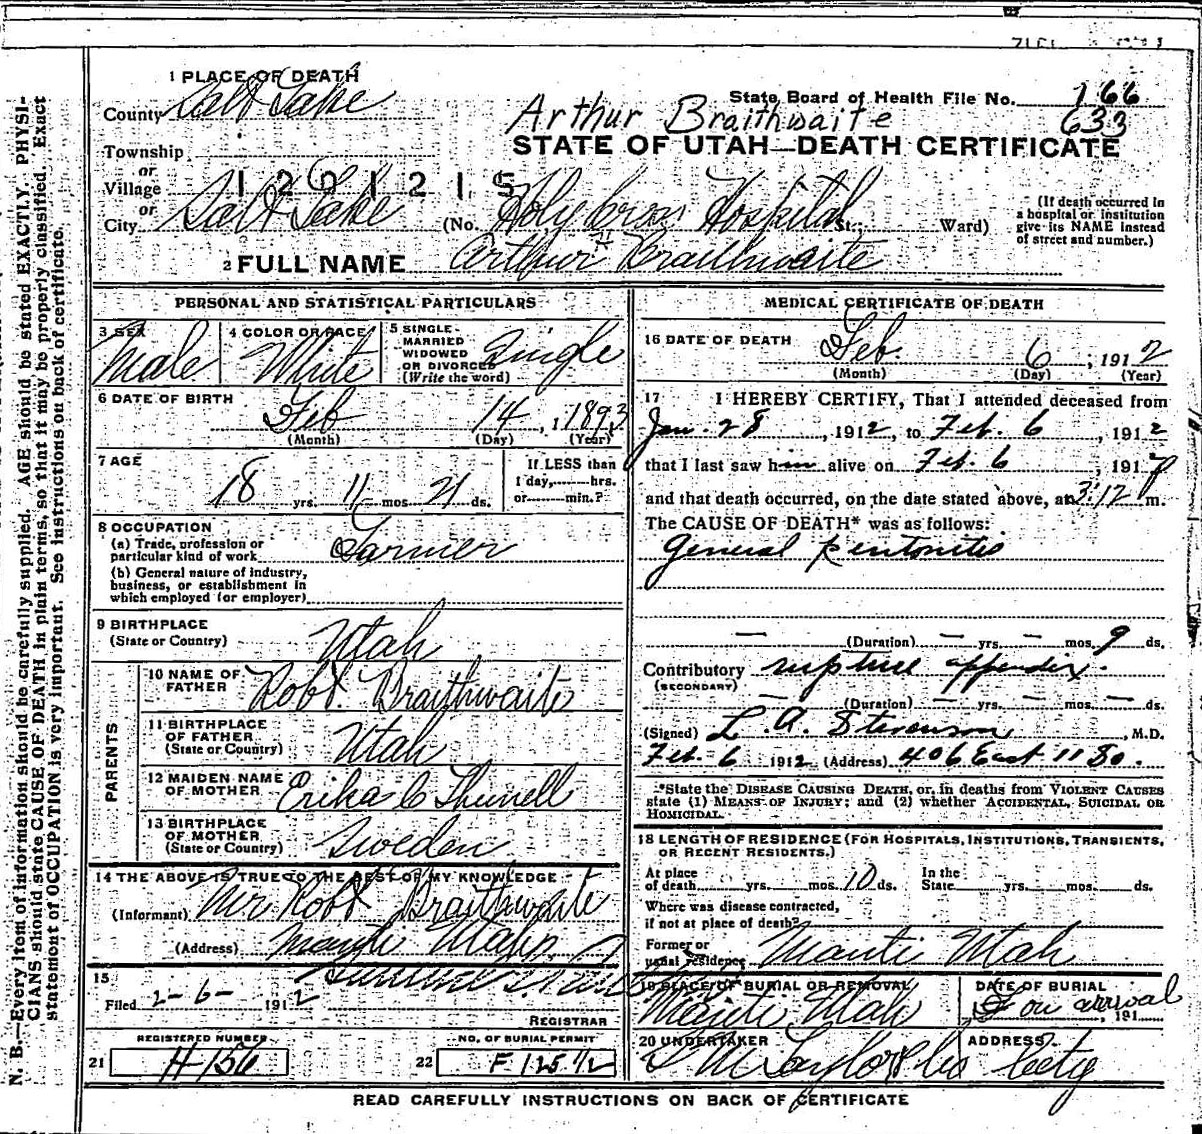 N. B.—Every item of information should be carefully supplied. AGE should be stated EXACTLY. PHYSI-
CIANS should state CAUSE OF DEATH in plain terms, so that it may be properly classified. Exact
statement of OCCUPATION is very important. See instructions on back of certificate.
1 PLACE OF DEATH
County Salt Lake
State Board of Health File No. 166
Arthur Braithwaite 633
STATE OF UTAH—DEATH CERTIFICATE
Township
or
Village 1201215
or
City Salt Lake (No. Holy Cross Hospital St., Ward)
(If death occurred in
a hospital or institution
give its NAME instead
of street and number.)
2 FULL NAME Arthur H Braithwaite
PERSONAL AND STATISTICAL PARTICULARS
3 SEX Male
4 COLOR OR RACE White
5 SINGLE
MARRIED
WIDOWED
OR DIVORCED
(Write the word) Single
6 DATE OF BIRTH
Feb 14, 1893
(Month) (Day) (Year)
7 AGE
18 yrs. 11 mos. 21 ds.
If LESS than
1 day, hrs.
or min.?
8 OCCUPATION
(a) Trade, profession or
particular kind of work Farmer
(b) General nature of industry,
business, or establishment in
which employed (or employer)
9 BIRTHPLACE
(State or Country) Utah
PARENTS
10 NAME OF
FATHER Robt. Braithwaite
11 BIRTHPLACE
OF FATHER
(State or Country) Utah
12 MAIDEN NAME
OF MOTHER Erika C Thunell
13 BIRTHPLACE
OF MOTHER
(State or Country) Sweden
14 THE ABOVE IS TRUE TO THE BEST OF MY KNOWLEDGE
(Informant) Mr Robt Braithwaite
(Address) Manti Utah
15
Filed 2-6- 1912
REGISTRAR
REGISTERED NUMBER
21 H-156
NO. OF BURIAL PERMIT
22 F 125 1/2
MEDICAL CERTIFICATE OF DEATH
16 DATE OF DEATH
Feb. 6, 1912
(Month) (Day) (Year)
17 I HEREBY CERTIFY, That I attended deceased from
Jan. 28, 1912, to Feb. 6, 1912
that I last saw him alive on Feb. 6, 191
and that death occurred, on the date stated above, at 3:12 m.
The CAUSE OF DEATH* was as follows:
General peritonitis
— (Duration) — yrs. — mos. 9 ds.
Contributory rupture appendix.
(SECONDARY)
— (Duration) — yrs. — mos. — ds.
(Signed) L. A. Stevenson, M.D.
Feb. 6 1912 (Address) 406 East 11 So.
*State the DISEASE CAUSING DEATH, or, in deaths from VIOLENT CAUSES
state (1) MEANS OF INJURY; and (2) whether ACCIDENTAL, SUICIDAL OR
HOMICIDAL.
18 LENGTH OF RESIDENCE (FOR HOSPITALS, INSTITUTIONS, TRANSIENTS,
OR RECENT RESIDENTS.)
At place
of death yrs. mos. 10 ds.
In the
State yrs. mos. ds.
Where was disease contracted,
if not at place of death?
Former or
usual residence Manti Utah
19 PLACE OF BURIAL OR REMOVAL
Manti Utah
DATE OF BURIAL
on arrival, 191
20 UNDERTAKER
S M Taylor & Co
ADDRESS
City
READ CAREFULLY INSTRUCTIONS ON BACK OF CERTIFICATE